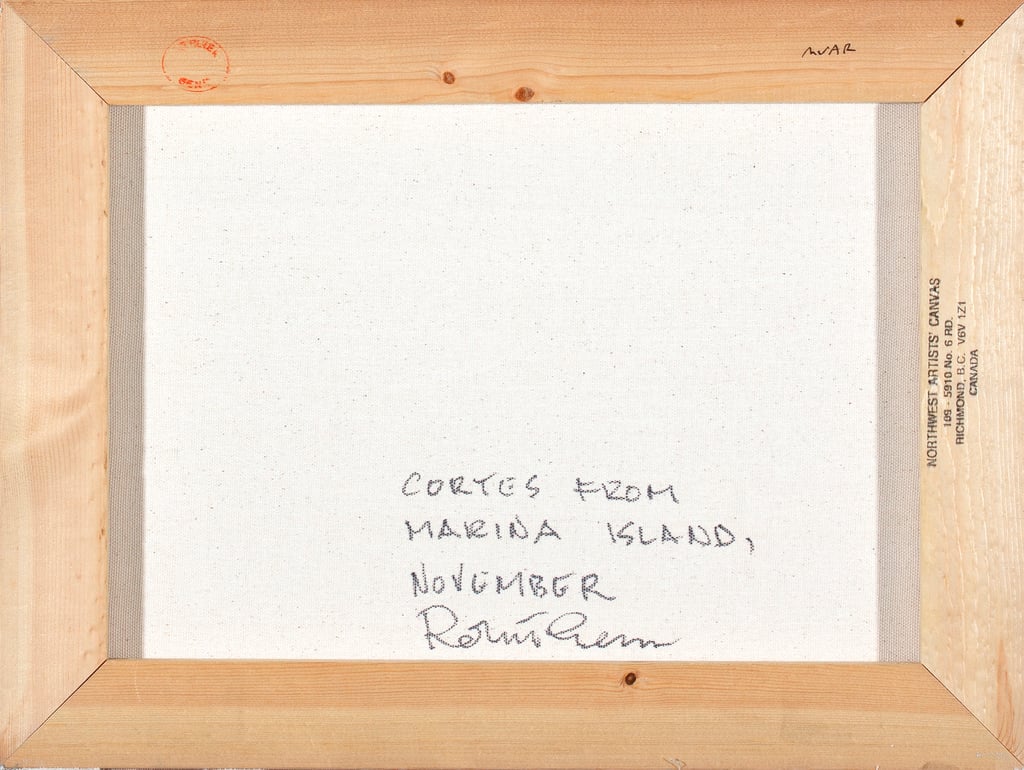 CORTES FROM
MARINA ISLAND,
NOVEMBER
NORTHWEST ARTISTS' CANVAS
109 - 5910 No. 6 RD.
RICHMOND, B.C. V6V 1Z1
CANADA